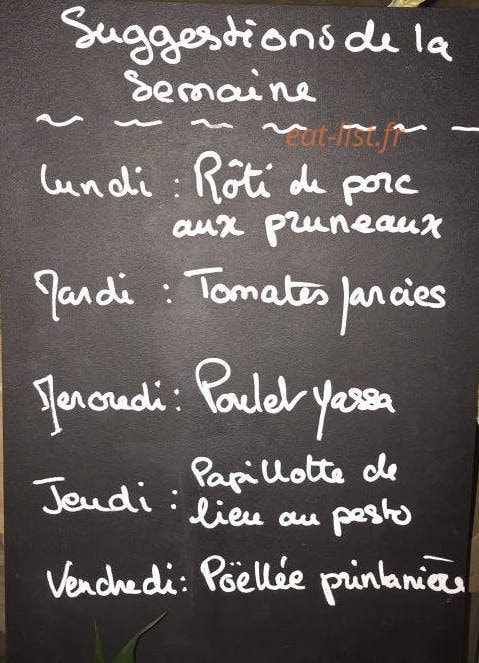 Suggestions de la
Semaine
eat-list.fr
Lundi : Rôti de porc
aux pruneaux
Mardi : Tomates farcies
Mercredi : Poulet yassa
Jeudi : Papillotte de
lieu au pesto
Vendredi : Poëllée printanière